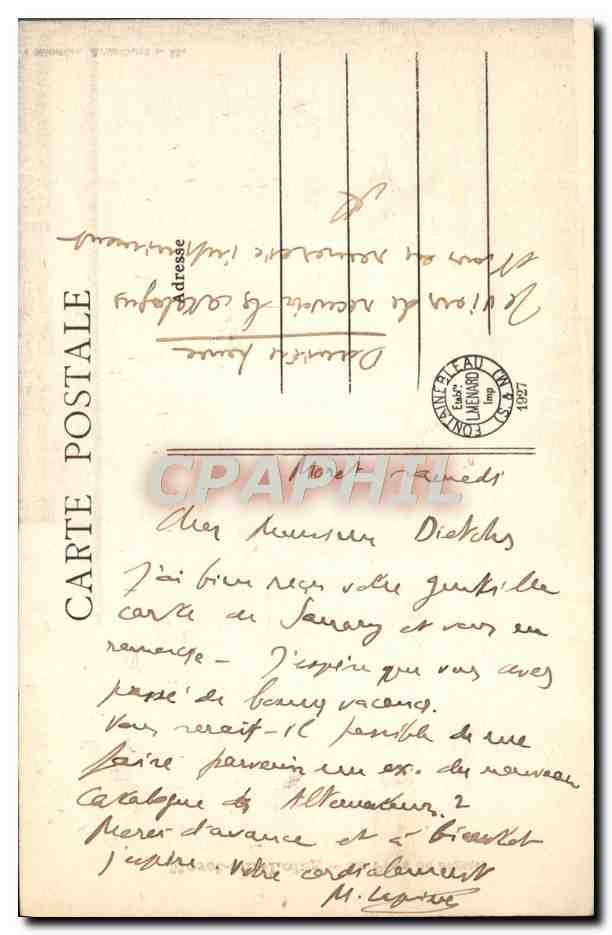 CARTE POSTALE
Adresse
Dernière heure
Je viens de recevoir le catalogue
Vous en remercie infiniment
FONTAINEBLEAU (M. & S.)
Etabts
L. MENARD
Imp
1927
CPAPHIL
Moret samedi
Cher Monsieur
J'ai bien reçu votre gentille
carte de Sanary et vous en
remercie - J'espère que vous avez
passé de bonnes vacances.
Vous serait-il possible de me
faire parvenir un ex. du nouveau
catalogue ?
Merci d'avance et à bientôt
j'espère votre cordialement
M. Lepine